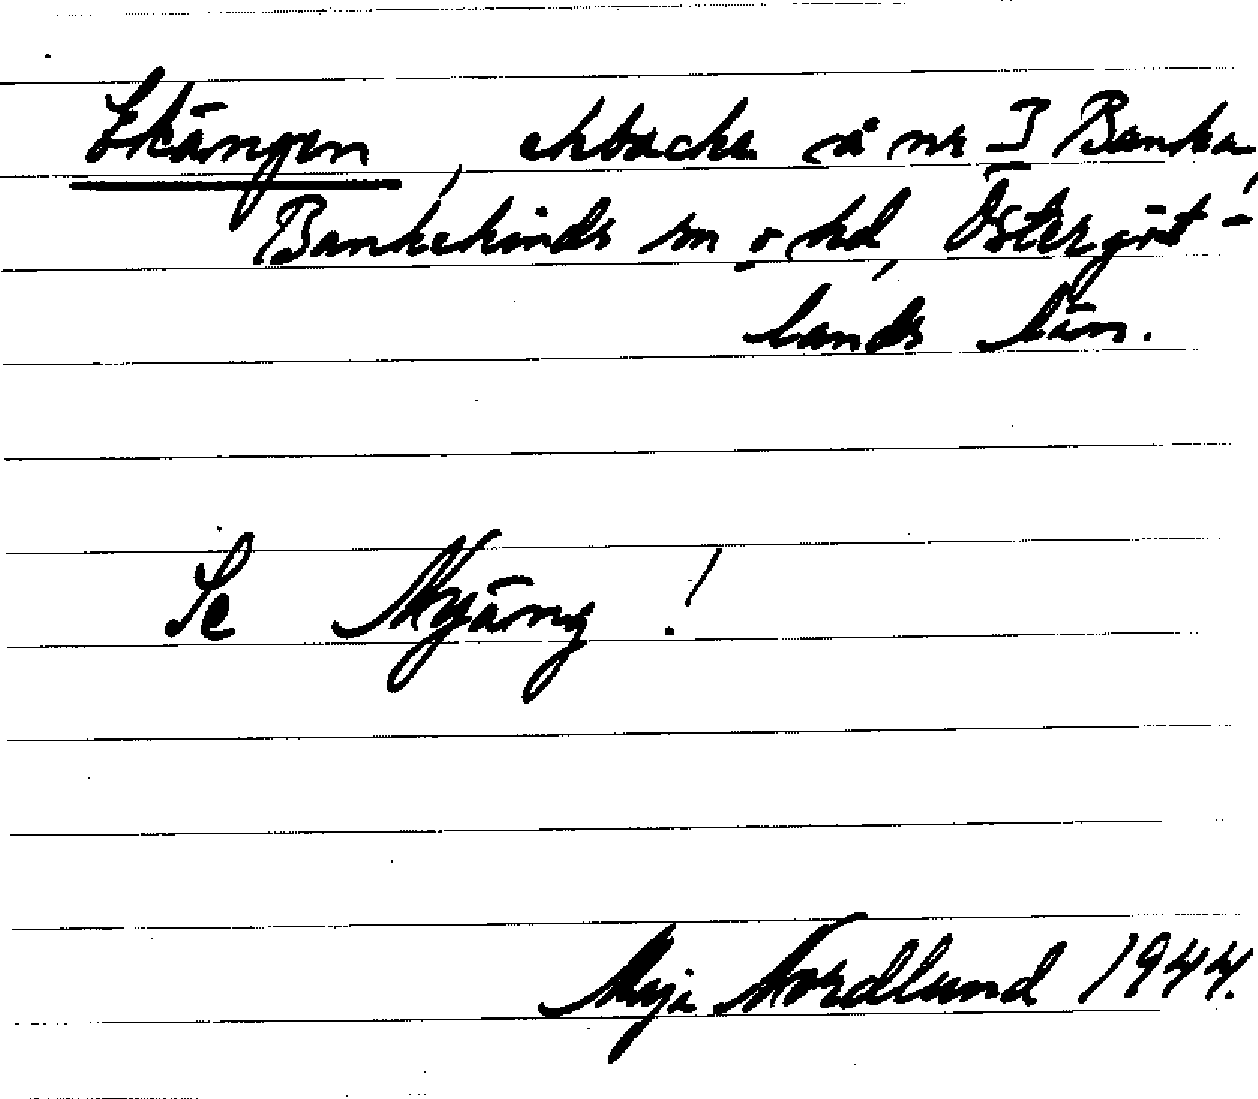 Ekängen, ekbacke å nr I Banka,
Bankekinds sn o hd, Östergöt-
lands län.
Se Nyäng!
Maja Nordlund 1944.